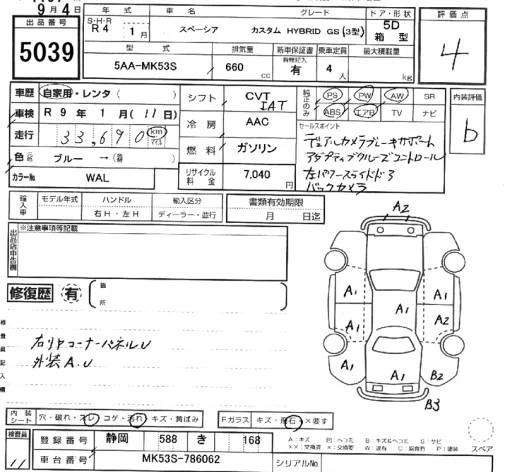 9月4日
出品番号
5039
年式 車名 グレード ドア・形状
S・H・R R4 1月 スペーシア カスタム HYBRID GS (3型) 5D 箱型
型式 排気量 新車保証書 乗車定員 最大積載量
5AA-MK53S 660 cc 有 4人 kg
評価点
4
車歴 自家用・レンタ( )
車検 R 9年 1月 (11日)
走行 33,690 km
色 ブルー →(替)
カラーNo WAL
シフト CVT IAT
冷房 AAC
燃料 ガソリン
リサイクル料金 7,040 円
純正のみ PS PW AW SR
ABS エアB TV ナビ
セールスポイント
デュアルカメラブレーキサポート
アダプティブクルーズコントロール
左パワースライドドア
バックカメラ
内装評価
b
輸入車 モデル年式 ハンドル 輸入区分
年 右H・左H ディーラー・並行
書類有効期限
月 日迄
出品店申告欄
※注意事項等記載
修復歴 有
箇所
検査員記入欄
右リヤコーナーパネルU
外装A.U
A2
A1 A1 A1
A1 A1 A2
A2 A1 B2
B3
内装シート 穴・破れ・スレ・コゲ・汚れ・キズ・黄ばみ
Fガラス キズ・飛石・×要す
検査員
11
登録番号 静岡 588 き 168
車台番号 MK53S-786062
シリアルNo
スペア